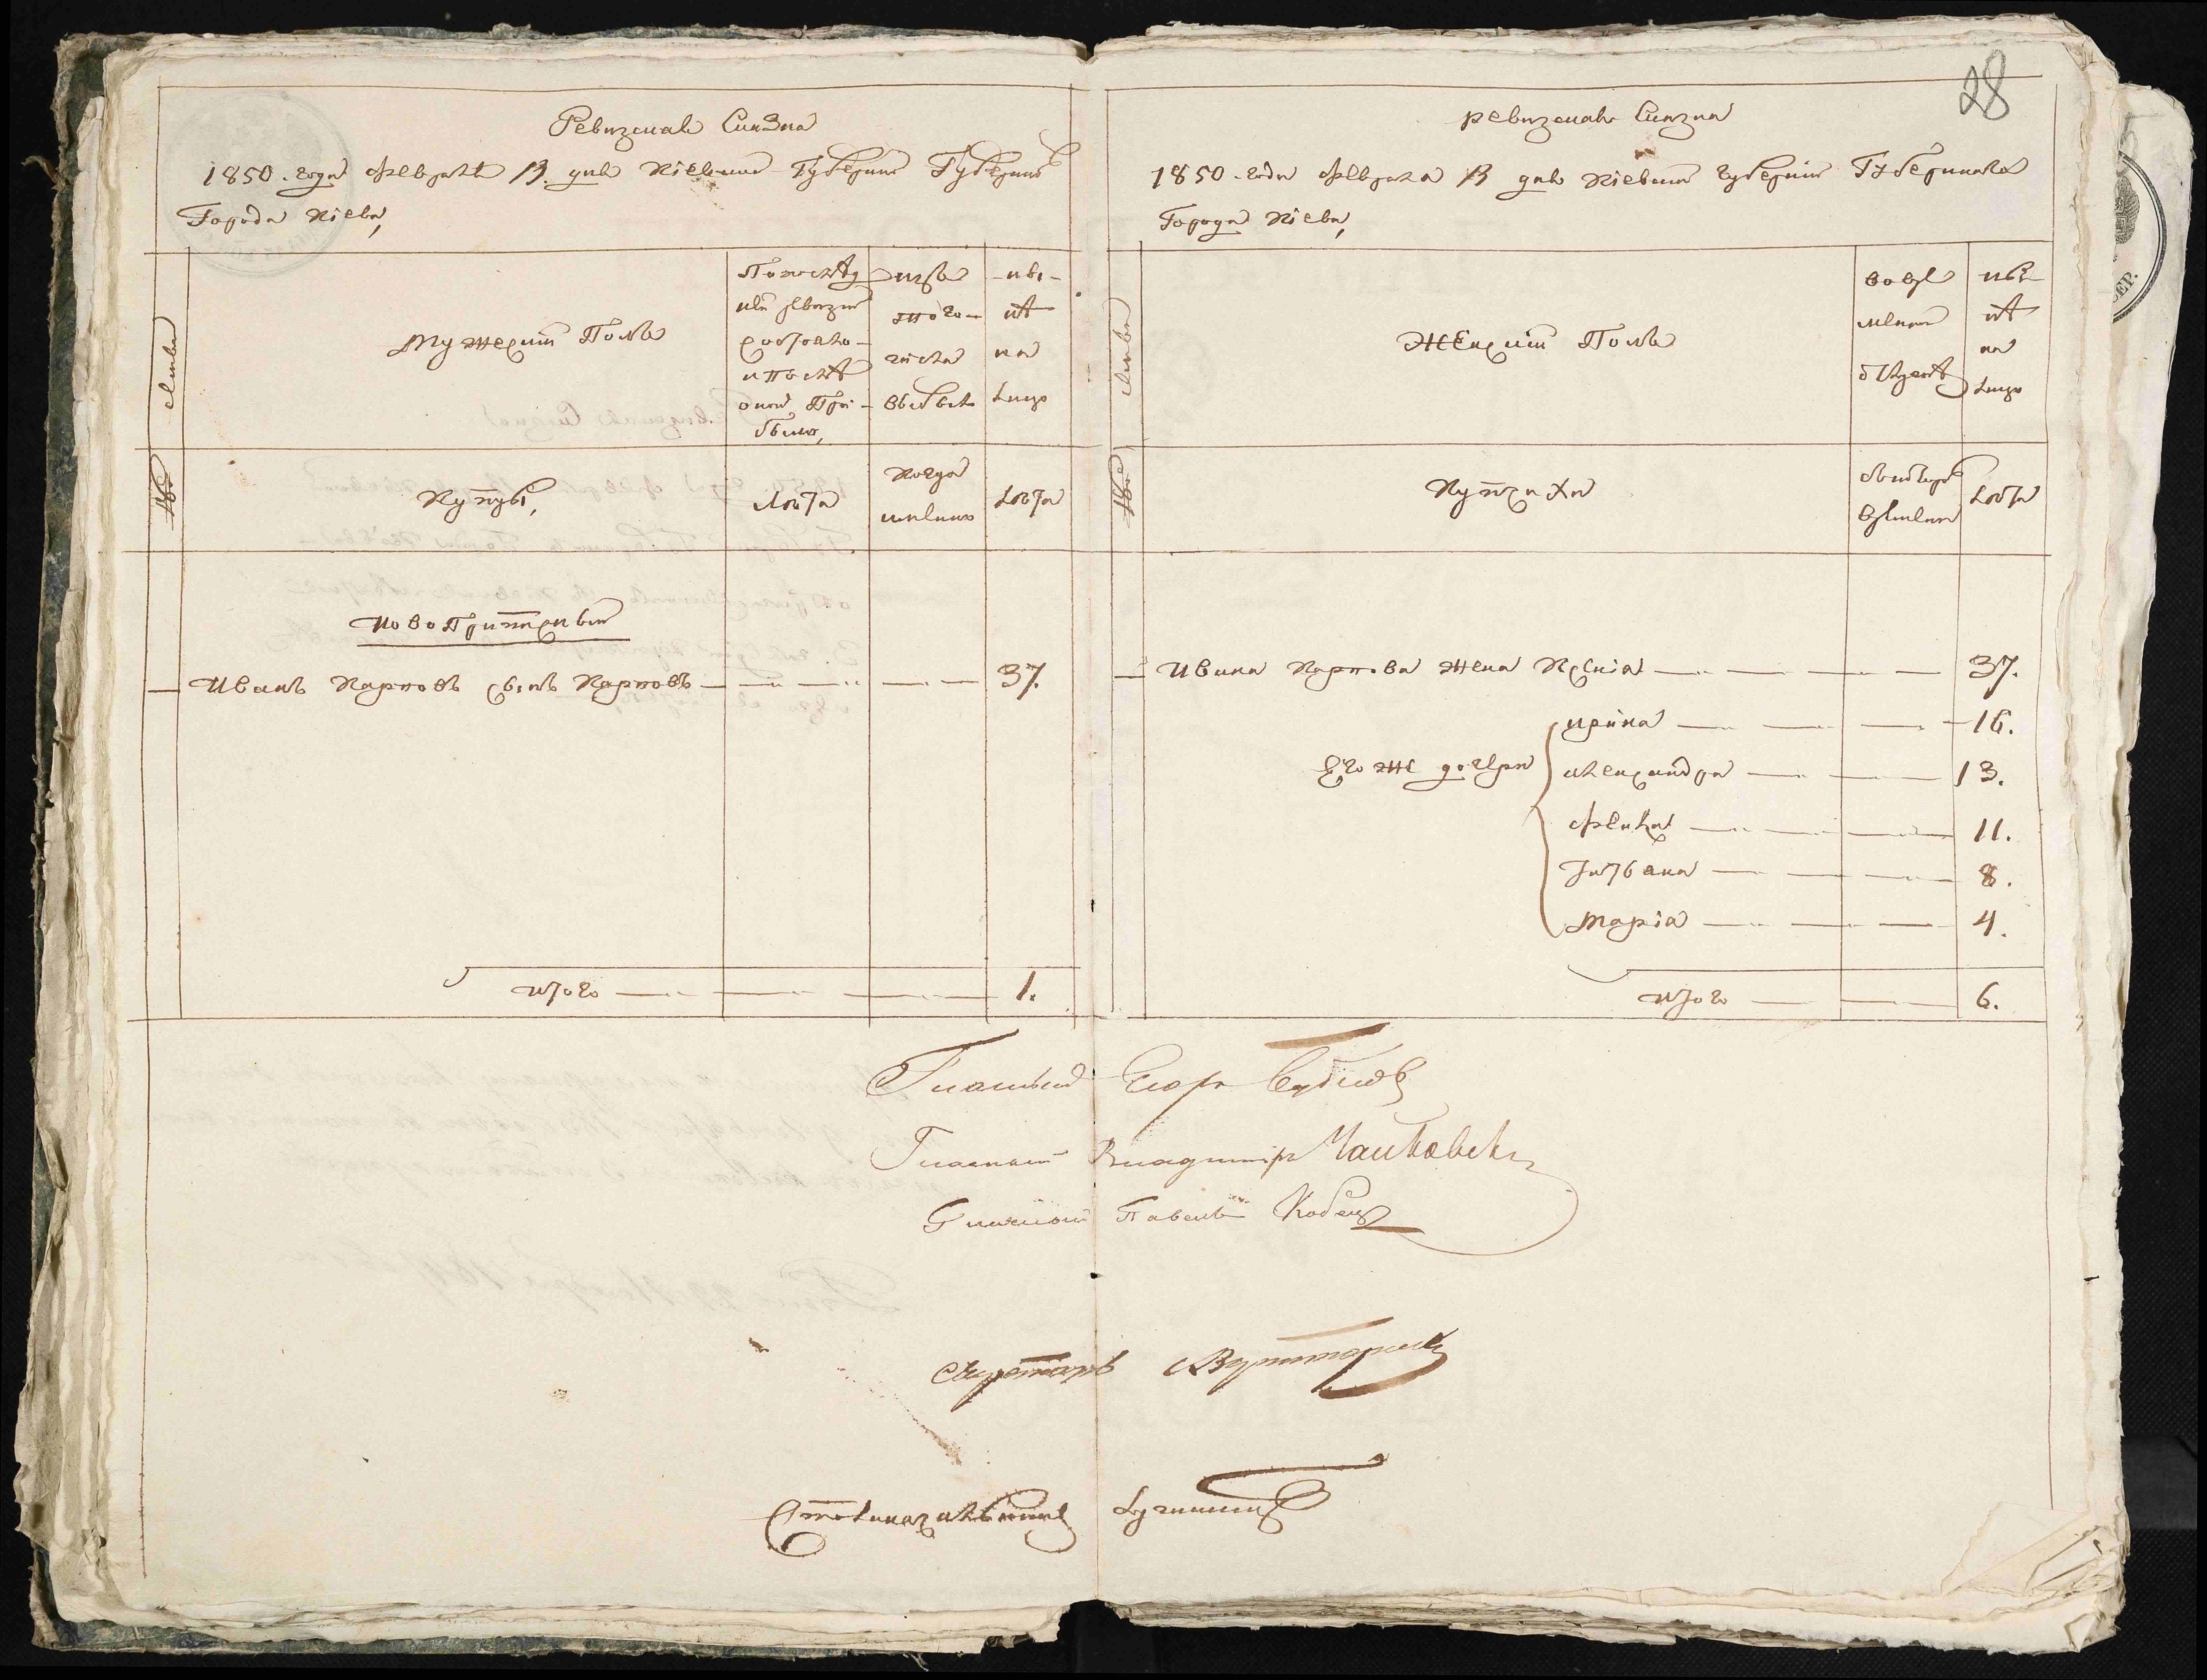 28
Ревизская Сказка
1850. года февраля 13 дня Кіевской Губерніи Губернск
Города Кіева,
Семьи
Мужескій Полъ
По послѣд
ней ревизіи
состояло
и послѣ
оной При-
было,
изъ
того
числа
выбыло
ны-
нѣ
на
лицо
№
Купцы,
Лѣта
Когда
именно
Лѣта
Новопричисленный
Иванъ Карповъ сынъ Карповъ 37.
Итого 1.
ревизская Сказка
1850. года февраля 13 дня Кіевской губерніи Губернскаго
Города Кіева,
Семьи
Женскій Полъ
во вре
менной
отлучкѣ
ны-
нѣ
на
лицо
№
Купчиха
Лѣта
Ивана Карпова жена Ксенія 37.
Его же дочери
ирина 16.
александра 13.
Фекла 11.
Татьяна 8.
Марія 4.
Итого 6.
Гласный Егоръ Бубновъ
Гласный Владиміръ Чайковскій
Гласный Павелъ Кобецъ
Секретарь
Столоначальникъ